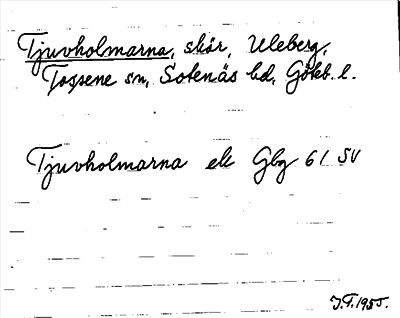 Tjuvholmarna, skär, Uleberg,
Tossene sn, Sotenäs hd, Göteb. l.
Tjuvholmarna ek Gbg 61 SV
J.F. 1955.